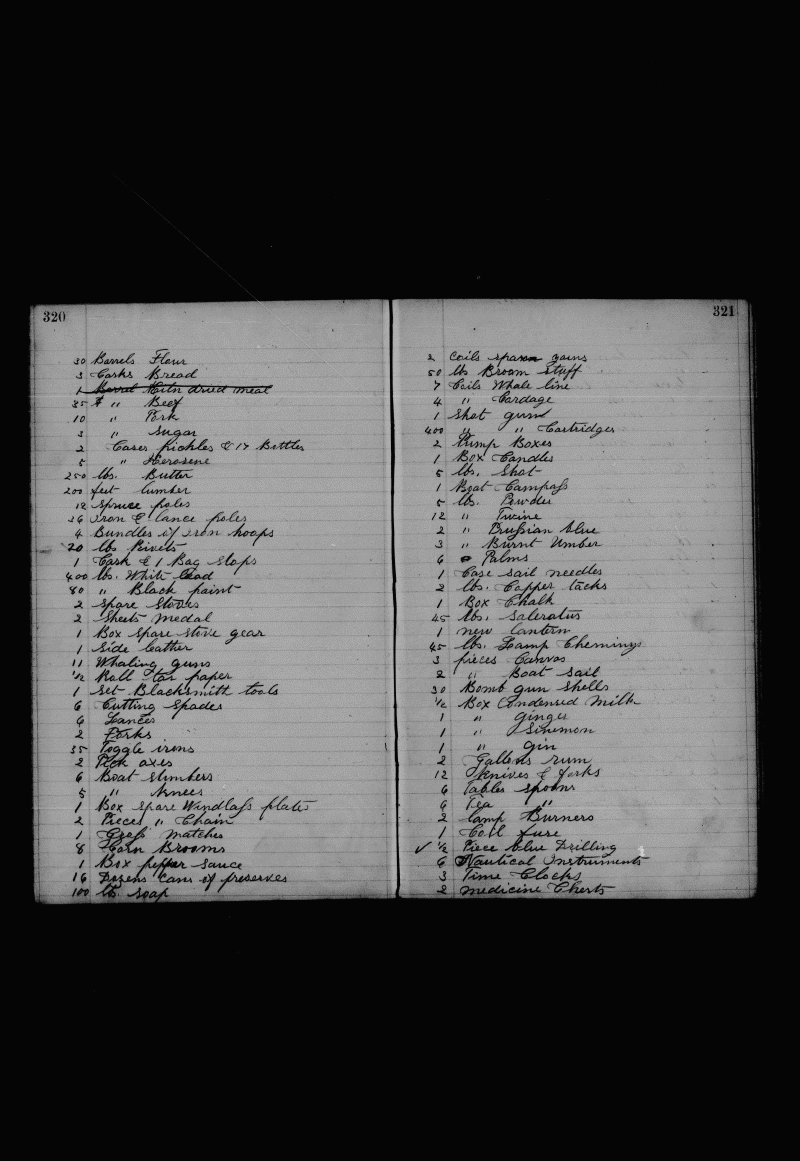 320
30 Barrels Flour
3 Casks Bread
1 Barrel Kiln dried meal
35 " Beef
10 " Pork
3 " Sugar
2 Cases pickles & 17 Bottles
5 " Kerosene
250 lbs. Butter
200 feet lumber
12 Spruce poles
26 Iron & lance poles
4 Bundles of iron hoops
20 lbs Rivets
1 Cask & 1 Bag Slops
400 lbs. White lead
80 " Black paint
2 Spare Stoves
2 Sheets medal
1 Box Spare stove gear
1 Side leather
11 Whaling guns
1/2 Roll tar paper
1 Set Blacksmith tools
6 Cutting Spades
6 Lances
2 Forks
35 Toggle irons
2 Pick axes
6 Boat stimbers
5 " Knees
1 Box spare Windlass plates
2 Pieces " Chain
1 Gross matches
8 Corn Brooms
1 Box pepper sauce
16 Dozens Cans of preserves
100 lb. Soap
321
2 Coils yarns
50 lbs Broom Stuff
7 Coils Whale line
4 " Cordage
1 Shot gun
400 " " Cartridges
2 Pump Boxes
1 Box Candles
5 lbs. Shot
1 Boat Campass
5 lbs. Powder
12 " Twine
2 " Prussian blue
3 " Burnt Umber
6 Palms
1 Case sail needles
2 lbs. Copper tacks
1 Box Chalk
45 lbs. Saleratus
1 new lantern
45 lbs. Lamp Chemings
3 pieces Canvas
2 " Boat sail
30 Bomb gun shells
1/2 Box Condensed Milk
1 " ginger
1 " Sinemon
1 " gin
2 Gallons rum
12 Knives & forks
6 Tables spoons
6 Tea "
2 lamp Burners
1 Coil fuse
✓ 1/2 Piece blue Drilling
6 Nautical Instruments
3 Time Clocks
2 medicine Chests